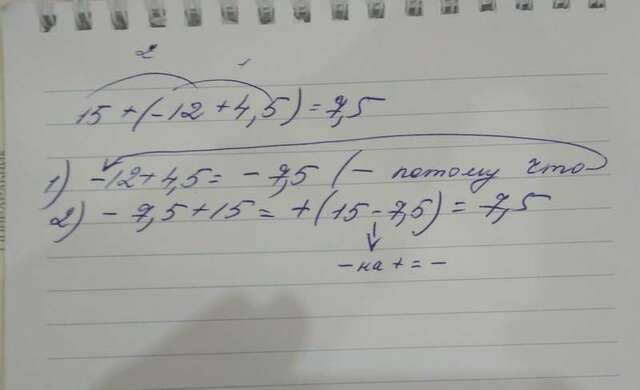 2 1
15 + (-12 + 4,5) = 7,5
1) -12 + 4,5 = - 7,5 (- потому что
2) - 7,5 + 15 = + (15 - 7,5) = 7,5
- на + = -